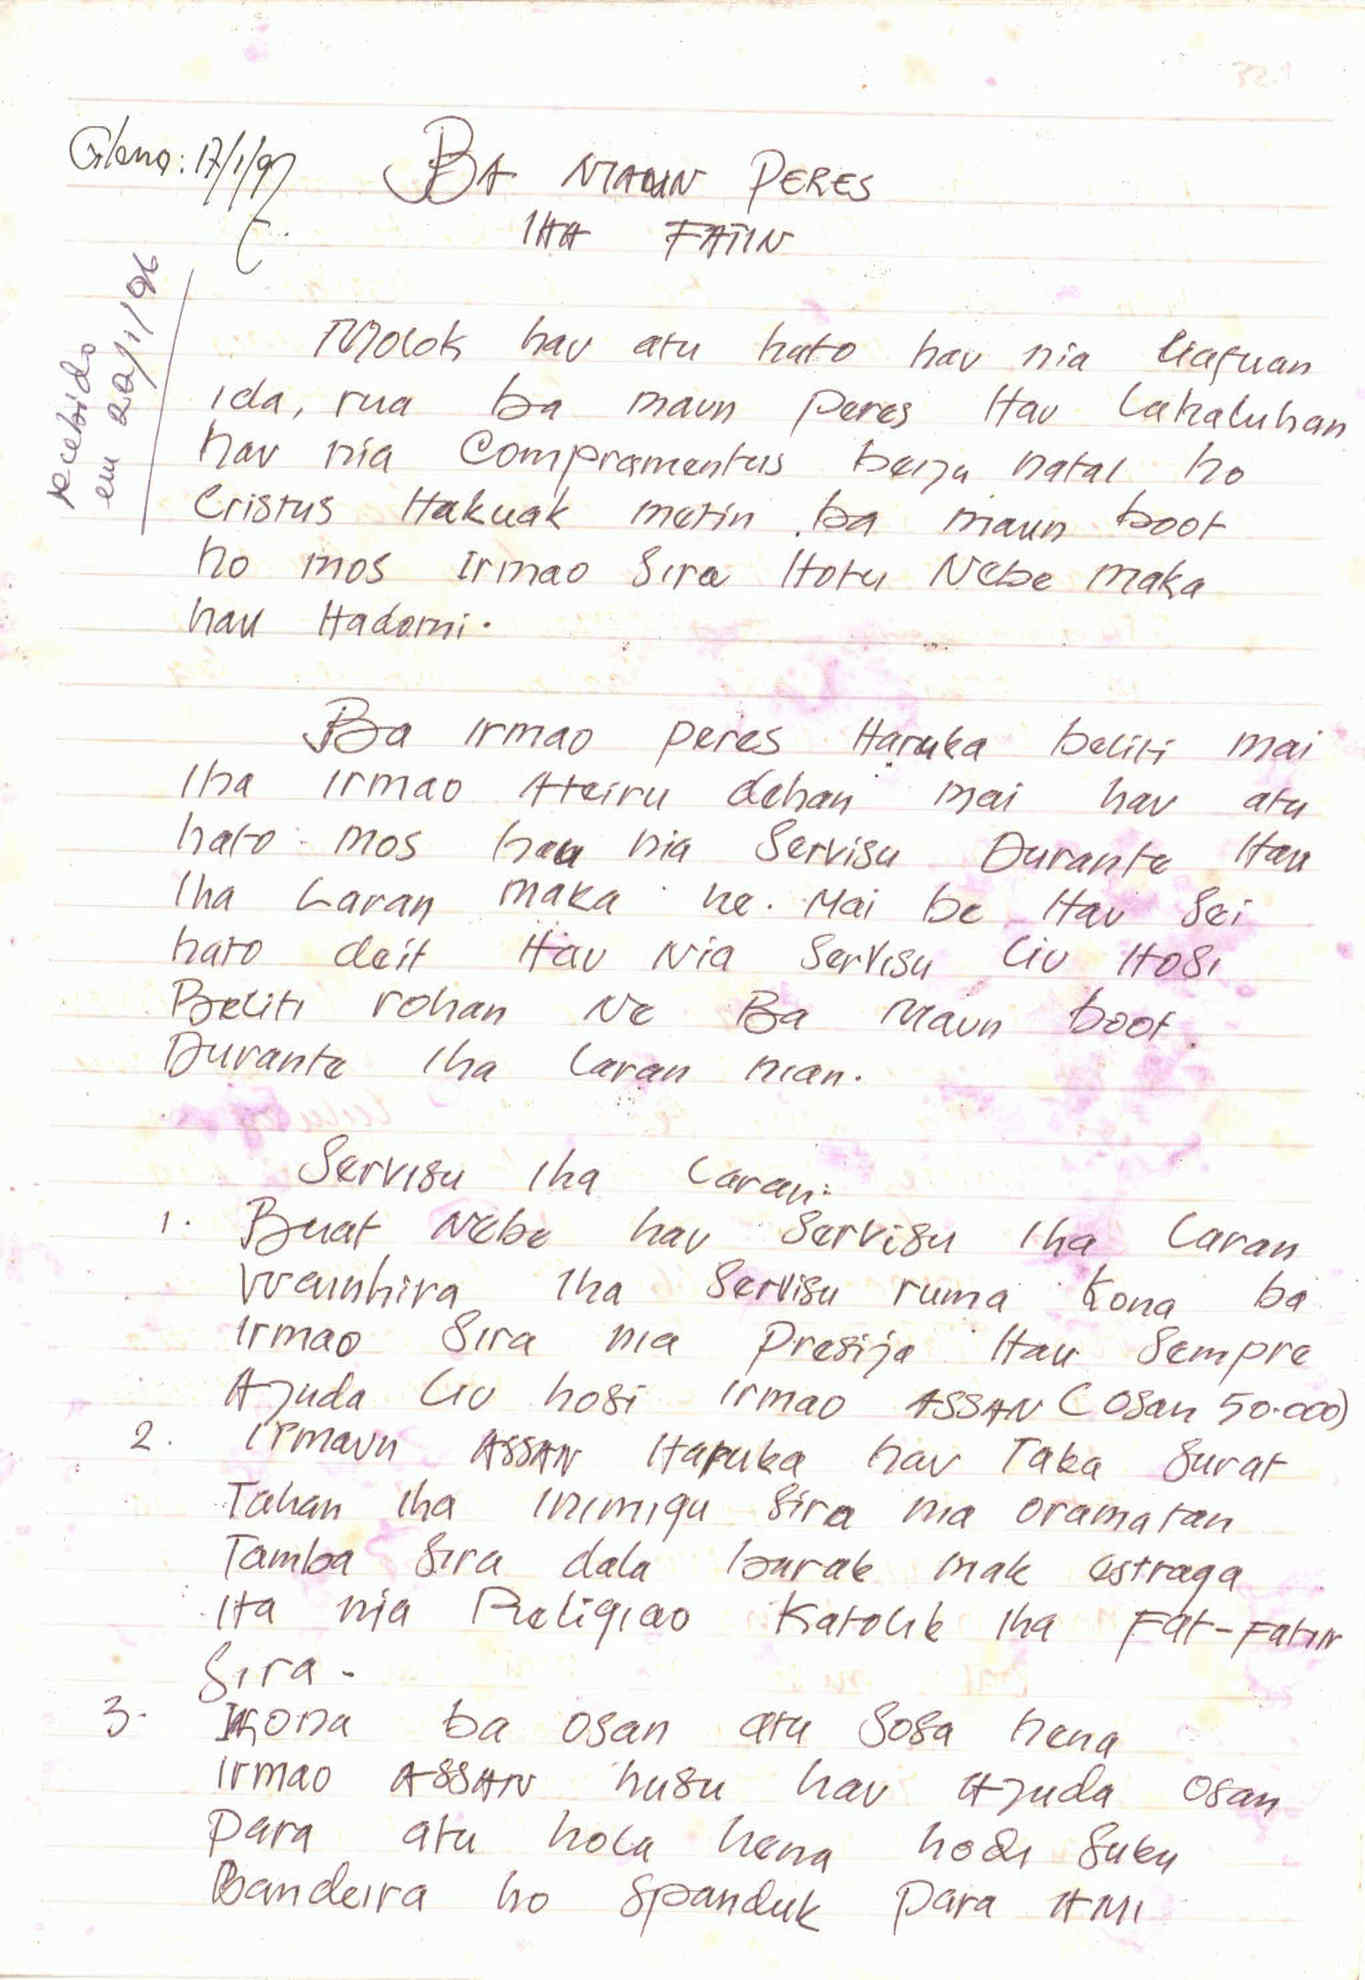 Gleno: 17/1/97
BA MAUN PERES
IHA FATIN
recebido
em 20/1/96
Molok hau atu hato hau nia liafuan
ida, rua ba maun Peres Hau Lahaluhan
hau nia Compramentus beiju natal ho
Cristus Hakuak metin ba maun boot
ho mos irmao Sira Hotu Nebe maka
hau Hadomi.
Ba irmao Peres Haruka beliti mai
iha irmao Ateiru dehan mai hau atu
hato mos hau nia Servisu Durante Hau
iha Laran maka ne. Mai be Hau Sei
hato deit Hau Nia Servisu liu Hosi
Beliti rohan Ne Ba Maun boot
Durante iha laran nian.
Servisu iha Laran:
1. Buat Nebe hau Servisu iha Laran
Wainhira iha Servisu ruma Kona ba
irmao Sira nia Presija Hau Sempre
Ajuda liu hosi irmao ASSAN (Osan 50.000)
2. irmaun ASSAN Haruka hau Taka Surat
Tahan iha inimigu Sira nia oramatan
Tamba Sira dala barak mak estraga
ita nia Religiao Katolik iha Fat-Fatin
Sira-
3. Kona ba osan atu Sosa hena
irmao ASSAN husu hau Ajuda osan
Para atu hola hena hodi Suku
Bandeira ho Spanduk Para AMI